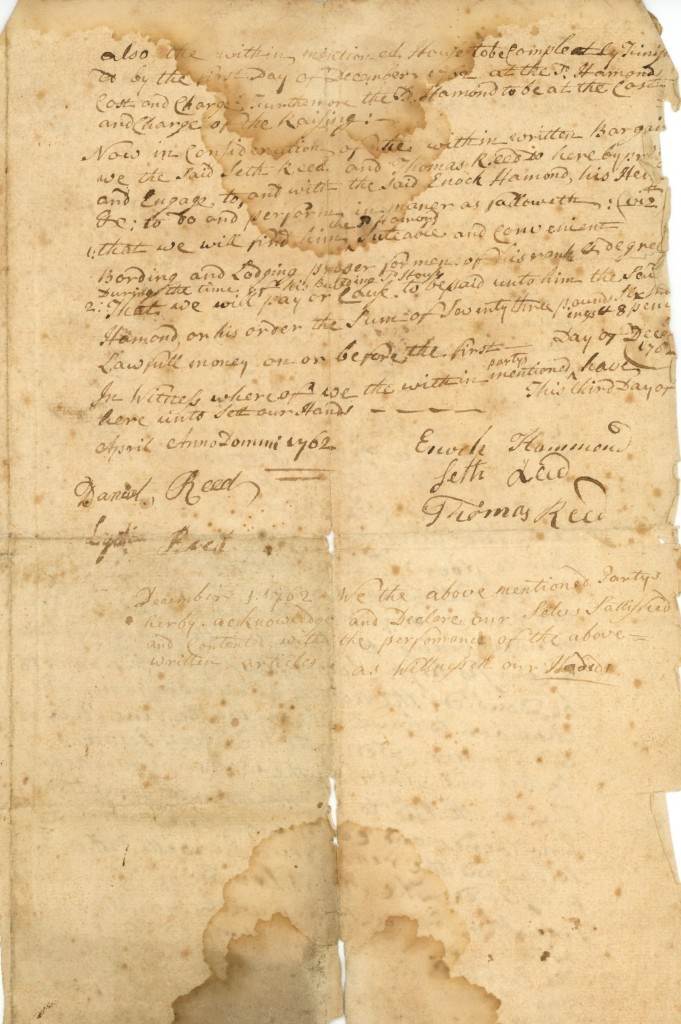 also the within mentioned House to be Compleatly finish
ed by the first Day of December 1762 at the Sd. Hamonds
Cost and Charge: Furthermore the Sd. Hamond to be at the Cost
and Charge of the Raising:-
Now in Consideration of the within written Bargain
we the Said Seth Reed and Thomas Reed do here by
and Engage to, and with the Said Enoch Hamond, his Hei
&c: to Do and perform in maner as falloweth: (viz
1: that we will find him the Sd Hamond Suteable and Convenient
Bording and Lodging proper for men of his rank & degree
During the time of his Building Sd House
2: That we will pay or Cause to be paid unto him the Said
Hamond, or his order the Sum of Seventy three pounds Six Shill
ings & 8 penc
Lawfull money on or before the first Day of Decem
1762
In Witness where of we the with in mentioned partys have
here unto Sett our Hands — — — This third Day of
April Anno Domini 1762
Enoch Hammond
Seth Reed
Daniel Reed
Thomas Reed
Lydia Reed
December 1 1762 We the above mentioned Partys
herby acknowledge and Declare our Selves Sattisfied
and Contented with the performance of the above=
written articles as Wittness our Hands